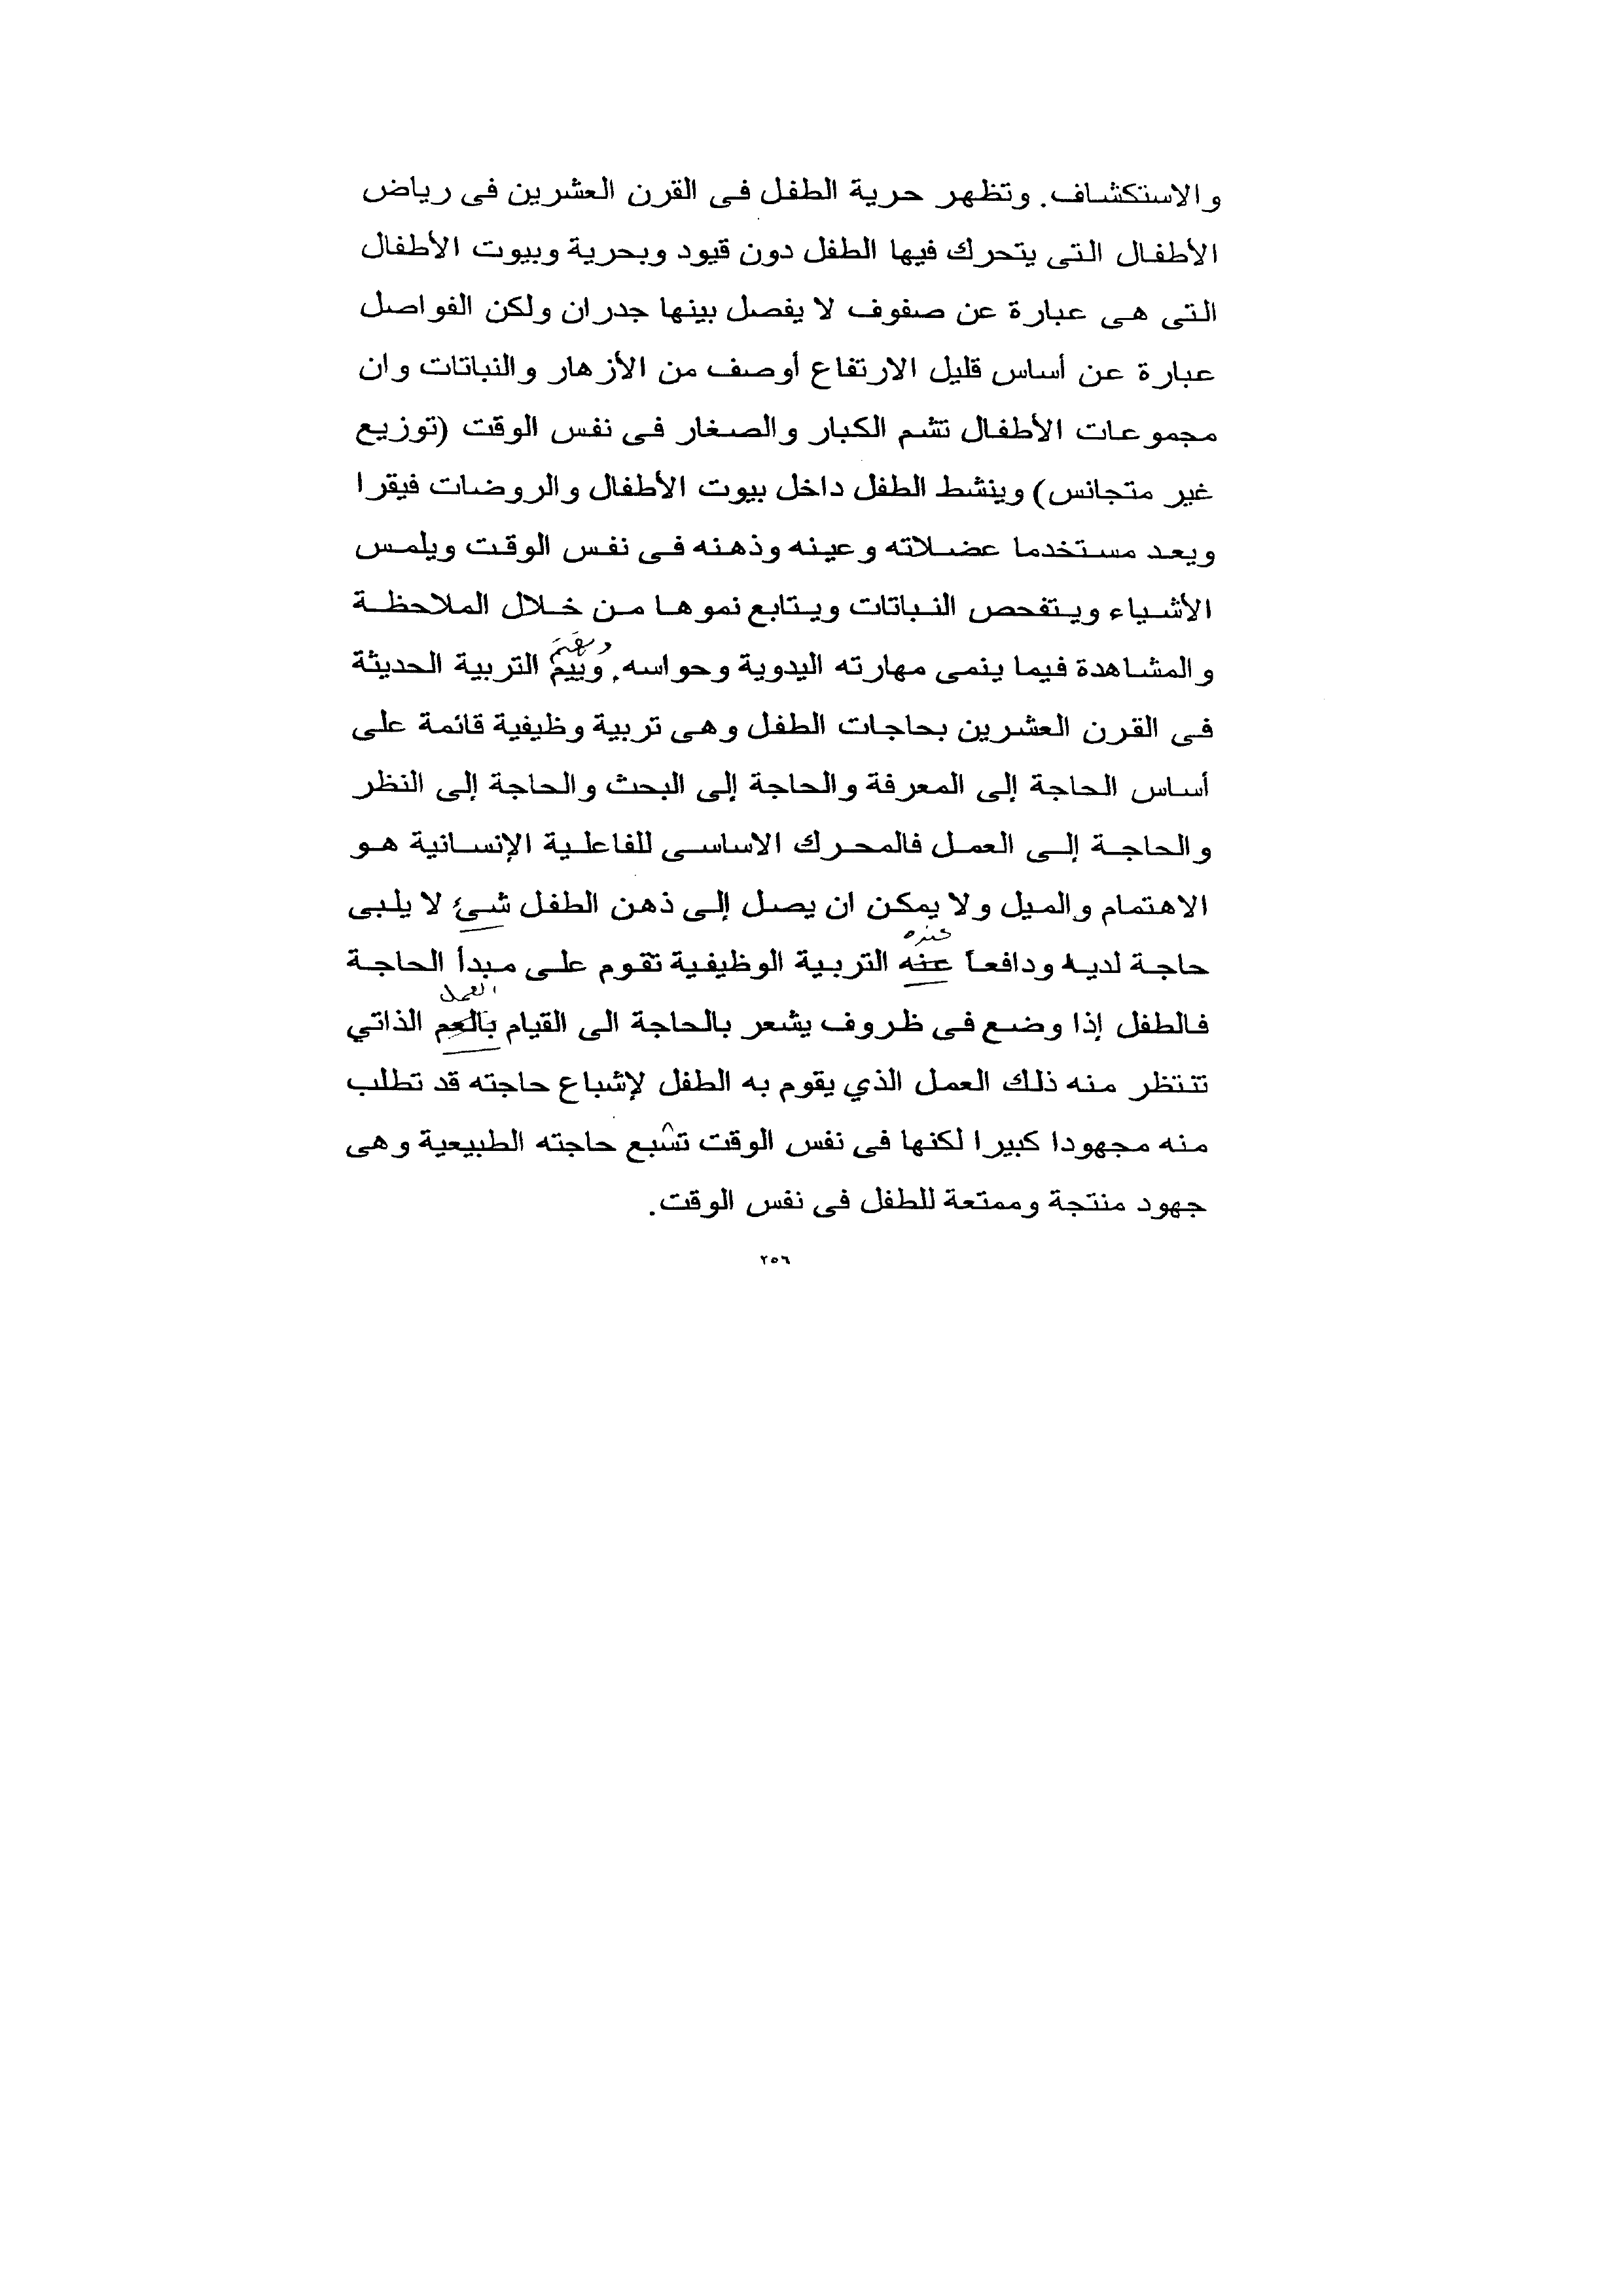 والاستكشاف. وتظهر حرية الطفل فى القرن العشرين فى رياض
الأطفال التى يتحرك فيها الطفل دون قيود وبحرية وبيوت الأطفال
التى هى عبارة عن صفوف لا يفصل بينها جدران ولكن الفواصل
عبارة عن أساس قليل الارتفاع أوصف من الأزهار والنباتات وان
مجموعات الأطفال تشم الكبار والصغار فى نفس الوقت (توزيع
غير متجانس) وينشط الطفل داخل بيوت الأطفال والروضات فيقرا
ويعد مستخدما عضلاته وعينه وذهنه فى نفس الوقت ويلمس
الأشياء ويتفحص النباتات ويتابع نموها من خلال الملاحظة
وتهتم
والمشاهدة فيما ينمى مهارته اليدوية وحواسه. وييم التربية الحديثة
فى القرن العشرين بحاجات الطفل وهى تربية وظيفية قائمة على
أساس الحاجة إلى المعرفة والحاجة إلى البحث والحاجة إلى النظر
والحاجة إلى العمل فالمحرك الاساسى للفاعلية الإنسانية هو
الاهتمام والميل ولا يمكن ان يصل إلى ذهن الطفل شئ لا يلبى
حاجة لديه ودافعاً عنه التربية الوظيفية تقوم على مبدأ الحاجة
العمل
فالطفل إذا وضع فى ظروف يشعر بالحاجة الى القيام بالعم الذاتي
تنتظر منه ذلك العمل الذي يقوم به الطفل لإشباع حاجته قد تطلب
منه مجهودا كبيرا لكنها فى نفس الوقت تشبع حاجته الطبيعية وهى
جهود منتجة وممتعة للطفل فى نفس الوقت.
٢٥٦